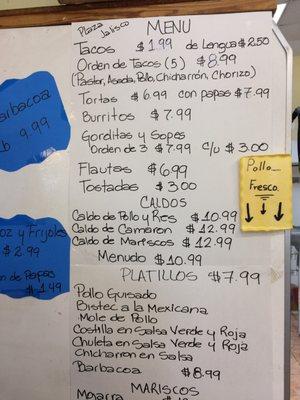 Plaza Jalisco
MENU
Tacos $1.99 de Lengua $2.50
Orden de Tacos (5) $8.99
(Pastor, Asada, Pollo, Chicharrón, Chorizo)
Tortas $6.99 con papas $7.99
Burritos $7.99
Gorditas y Sopes
Orden de 3 $7.99 c/u $3.00
Flautas $6.99
Tostadas $3.00
CALDOS
Caldo de Pollo y Res $10.99
Caldo de Camaron $12.99
Caldo de Mariscos $12.99
Menudo $10.99
PLATILLOS $7.99
Pollo Guisado
Bistec a la Mexicana
Mole de Pollo
Costilla en Salsa Verde y Roja
Chuleta en Salsa Verde y Roja
Chicharron en Salsa
Barbacoa $8.99
MARISCOS
Mojarra
Barbacoa
lb 9.99
oz y Frijoles
$2.99
en de Papas
$1.49
Pollo
Fresco